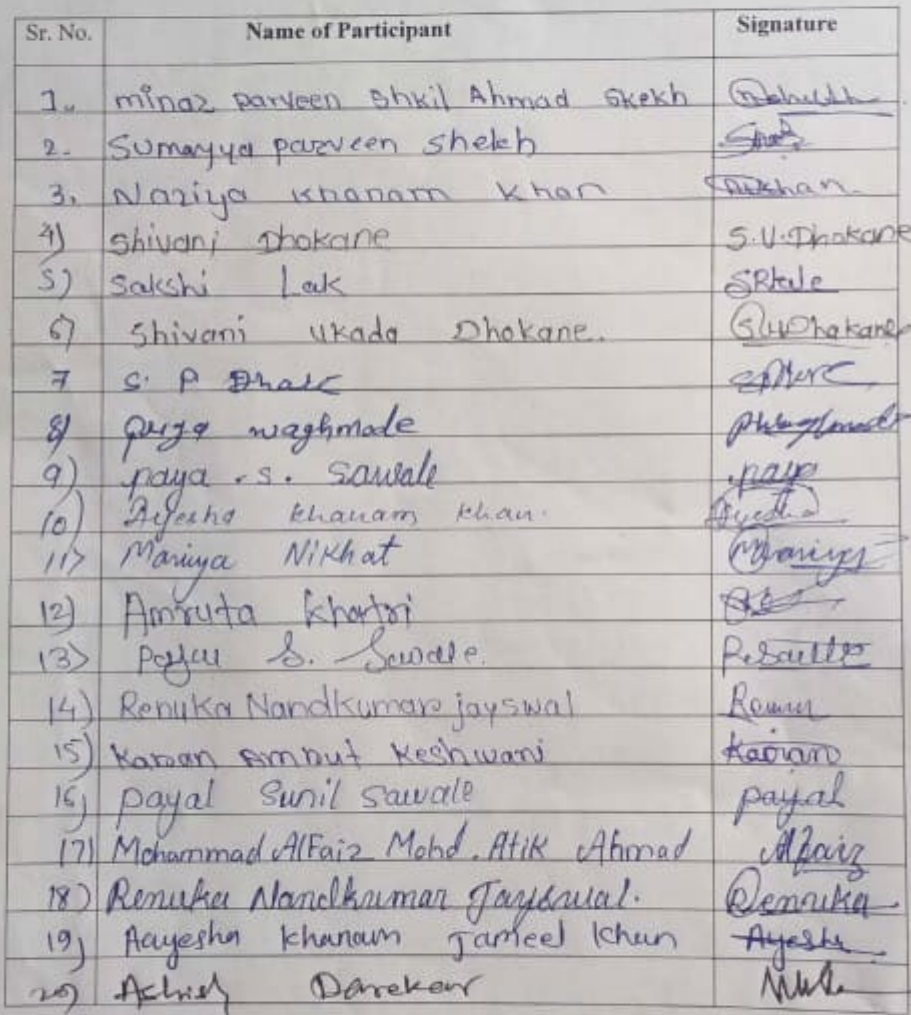 Sr. No. Name of Participant Signature
1. minaz parveen Shkil Ahmad Skekh
2. Sumayya parveen shekh
3. Naziya Khanam Khan
4) Shivani Dhokane S.U.Dhokane
5) Sakshi Lak
6) Shivani Ukada Dhokane. S.U.Dhokane
7 S. P
8) waghmade
9) paya .s. sawale paya
10) Ayesha khanam khan. Ayesha
11) Mariya Nikhat Mariya
12) Amruta Khatri
13) S. Sawale.
14) Renuka Nandkumar jayswal Renu
15) Karan Amrut Keshwani Karan
16) payal Sunil sawale payal
17) Mohammad AlFaiz Mohd. Atik Ahmad Alfaiz
18) Renuka Nandkumar Jayswal. Renuka
19) Aayesha Khanam Jameel Khan Ayesha
20) Ashish Darekar